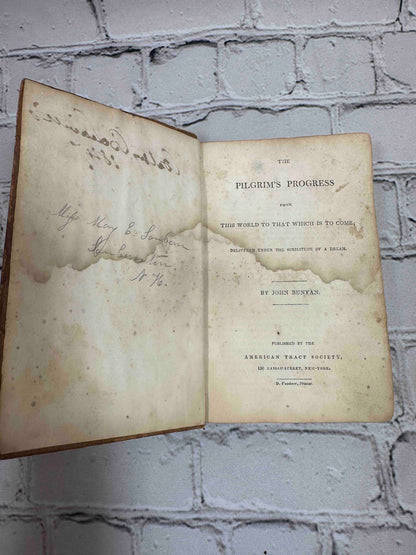 Miss May E.
N. Y.
THE
PILGRIM'S PROGRESS
FROM
THIS WORLD TO THAT WHICH IS TO COME;
DELIVERED UNDER THE SIMILITUDE OF A DREAM.
BY JOHN BUNYAN.
PUBLISHED BY THE
AMERICAN TRACT SOCIETY,
150 NASSAU-STREET, NEW-YORK.
D. Fanshaw, Printer.